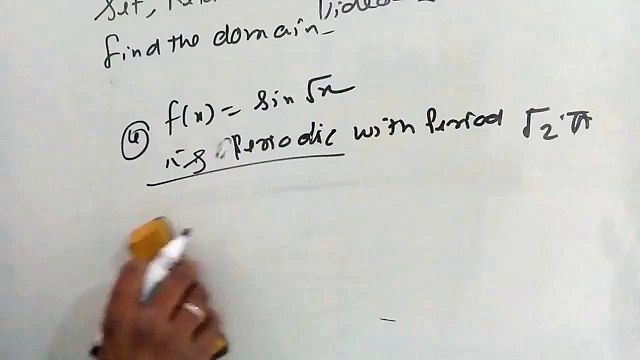 Set, Video
find the domain
④ f(x) = sin √x
is Periodic with Period √2·π